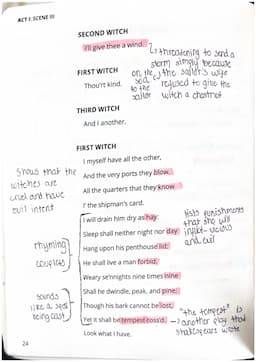 ACT I: SCENE III
SECOND WITCH
I'll give thee a wind.
↳ threatening to send a
storm simply because
the sailor's wife
refused to give the
witch a chestnut
on the
sea
to the
sailor
FIRST WITCH
Thou'rt kind.
THIRD WITCH
And I another.
FIRST WITCH
I myself have all the other,
And the very ports they blow,
All the quarters that they know
I' the shipman's card.
I will drain him dry as hay:
Sleep shall neither night nor day
Hang upon his penthouse lid;
He shall live a man forbid.
Weary se'nnights nine times nine
Shall he dwindle, peak and pine;
Though his bark cannot be lost,
Yet it shall be tempest-toss'd.
Look what I have.
Shows that the
witches are
cruel and have
evil intent
rhyming
couplets
sounds
like a spell
being cast
lists punishments
that she will
inflict- vicious
and evil
"the tempest" is
→ another play that
shakespeare wrote
24